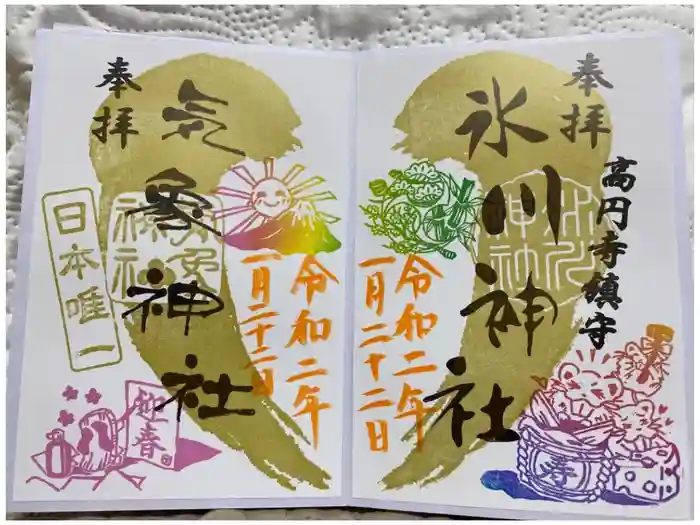 奉拝
高円寺鎮守
氷川神社
令和二年
一月二十二日
寿
奉拝
気象神社
日本唯一
令和二年
一月二十二日
迎春